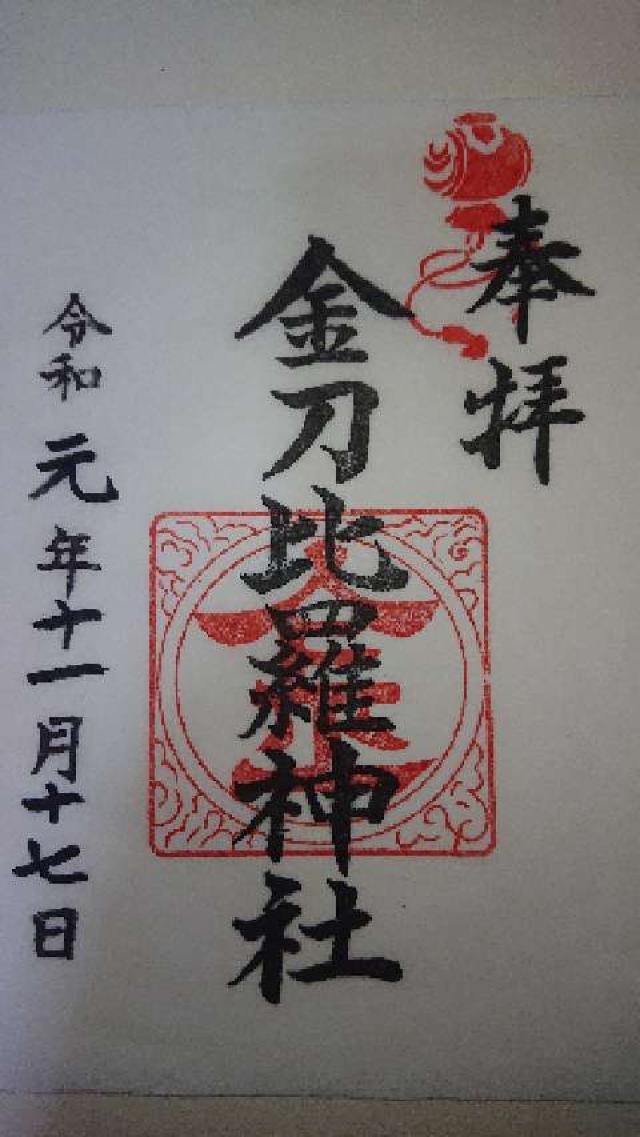 奉拝
金刀比羅神社
令和元年十一月十七日